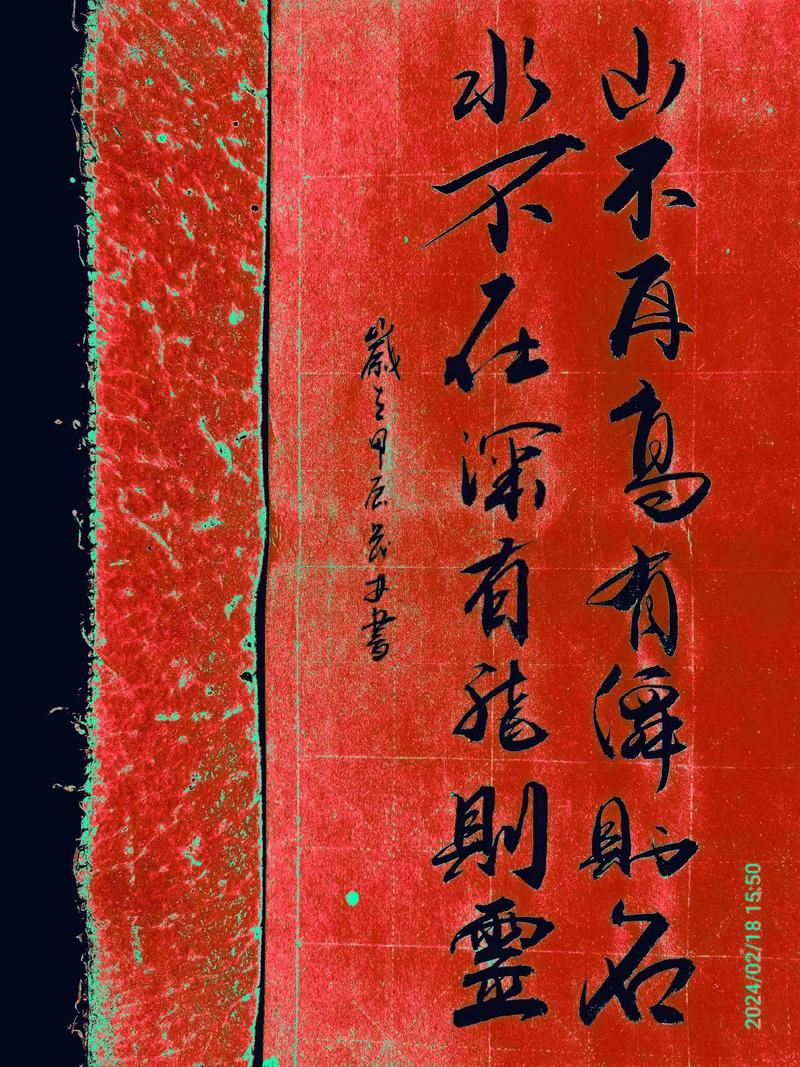 山不再高有僊則名
水不在深有龍則靈
歲甲辰書
2024/02/18 15:50